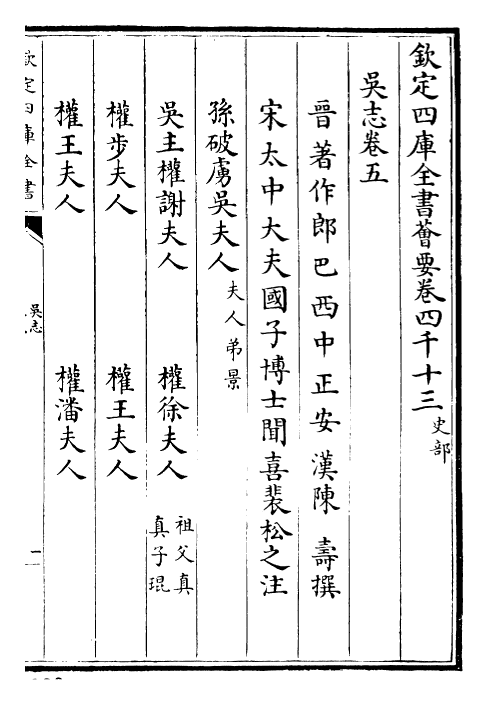 欽定四庫全書薈要卷四千十三史部
吳志卷五
晉著作郎巴西中正安漢陳壽撰
宋太中大夫國子博士聞喜裴松之注
孫破虜吳夫人夫人弟景
吳主權謝夫人 權徐夫人祖父真
真子琨
權步夫人 權王夫人
權王夫人 權潘夫人
欽定四庫全書
吳志